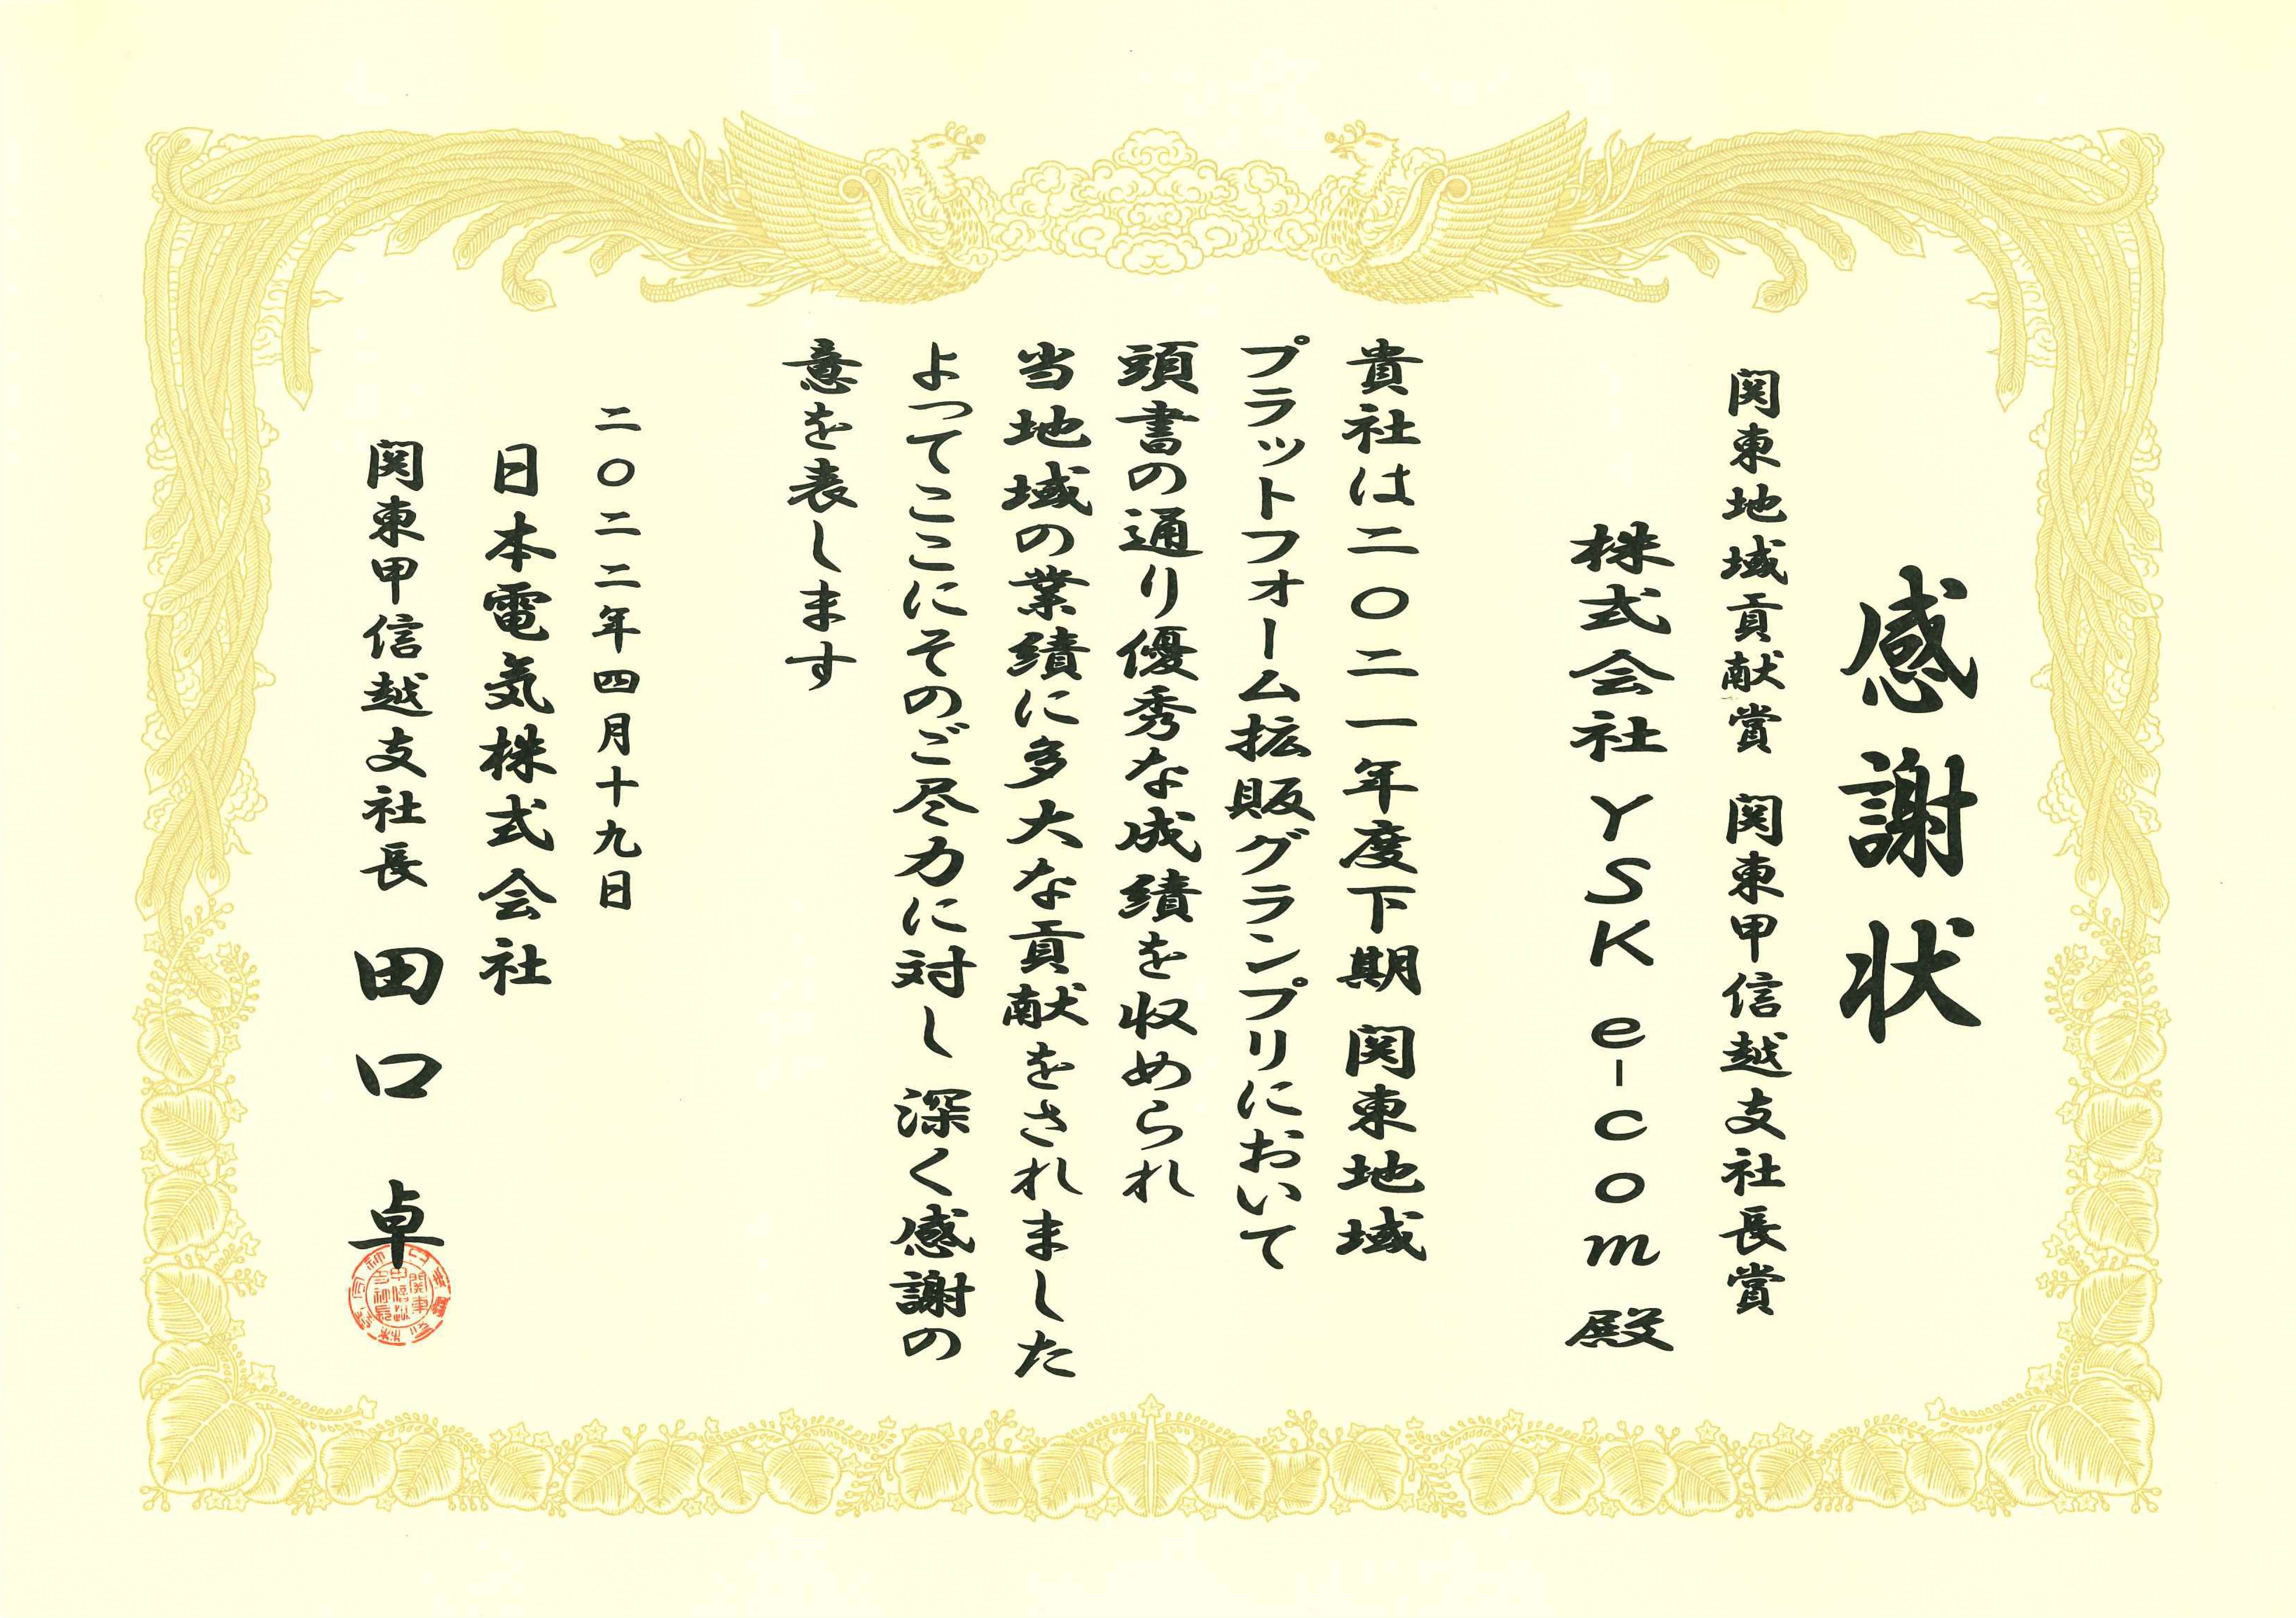 感謝状
関東地域貢献賞　関東甲信越支社長賞
株式会社YSK e-com 殿
貴社は二〇二一年度下期 関東地域
プラットフォーム拡販グランプリにおいて
頭書の通り優秀な成績を収められ
当地域の業績に多大な貢献をされました
よってここにそのご尽力に対し 深く感謝の
意を表します
二〇二二年四月十九日
日本電気株式会社
関東甲信越支社長　田口　卓